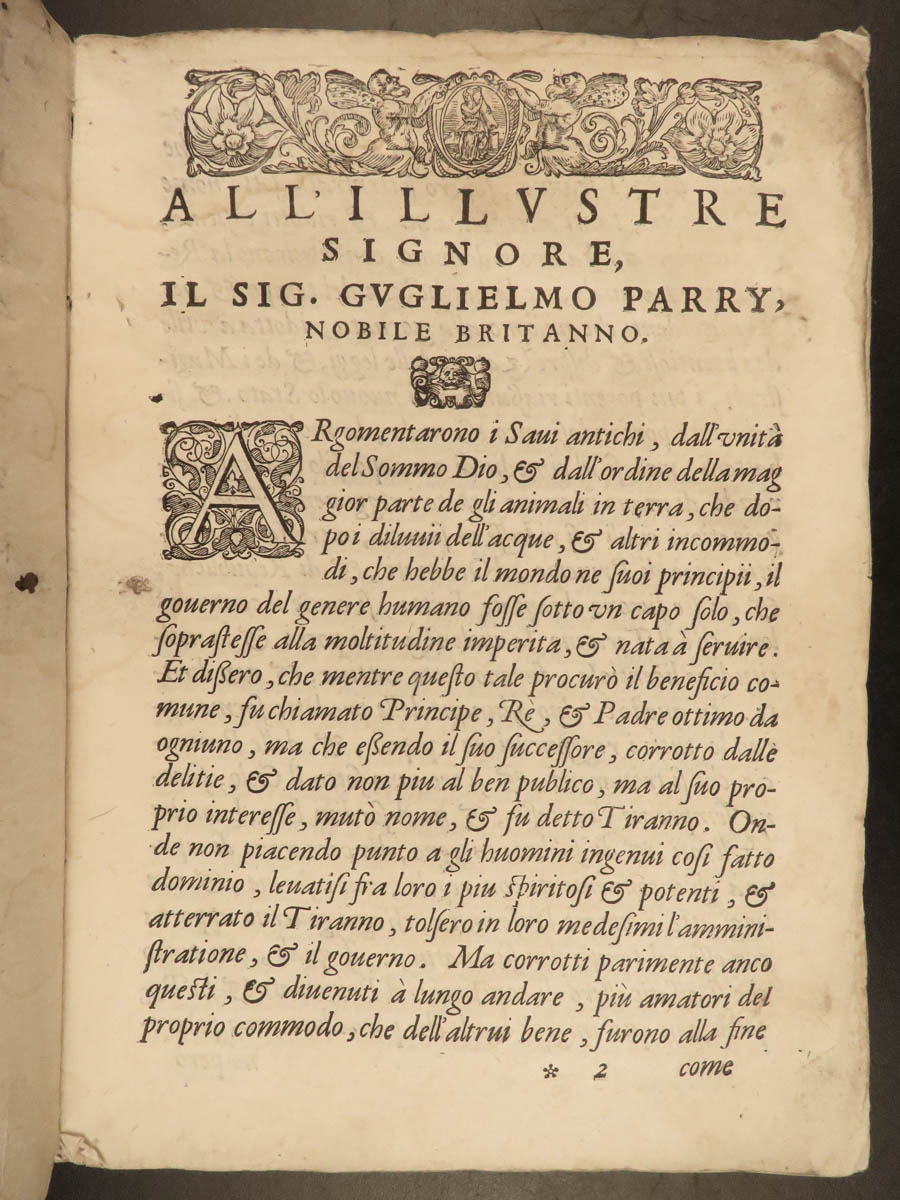 ALL'ILLVSTRE
SIGNORE,
IL SIG. GVGLIELMO PARRY,
NOBILE BRITANNO.
ARgomentarono i Saui antichi, dall'vnità
del Sommo Dio, & dall'ordine della mag
gior parte de gli animali in terra, che do-
po i diluuii dell'acque, & altri incommo-
di, che hebbe il mondo ne ſuoi principii, il
gouerno del genere humano foſſe ſotto vn capo ſolo, che
ſopraſteſſe alla moltitudine imperita, & nata à ſeruire.
Et dißero, che mentre queſto tale procurò il beneficio co-
mune, fu chiamato Principe, Re, & Padre ottimo da
ogniuno, ma che eßendo il ſuo ſucceſſore, corrotto dalle
delitie, & dato non piu al ben publico, ma al ſuo pro-
prio intereſſe, mutò nome, & fu detto Tiranno. On-
de non piacendo punto a gli huomini ingenui coſi fatto
dominio, leuatiſi fra loro i piu ſpiritoſi & potenti, &
atterrato il Tiranno, tolſero in loro medeſimi l'ammini-
ſtratione, & il gouerno. Ma corrotti parimente anco
queſti, & diuenuti à lungo andare, più amatori del
proprio commodo, che dell'altrui bene, furono alla fine
* 2 come